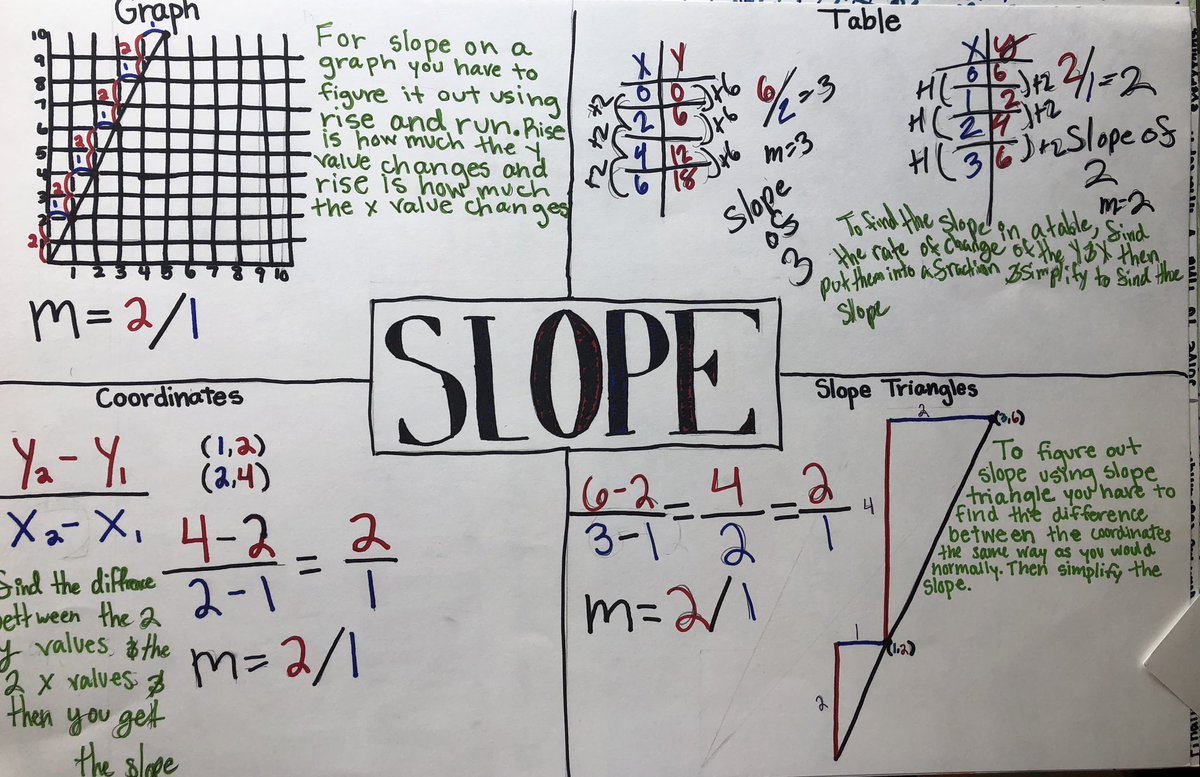 Graph
10
9
8
7
6
5
4
3
2
1 2 3 4 5 6 7 8 9 10
2 1
2 1
2 1
2 1
2 1
m = 2/1
For slope on a
graph you have to
figure it out using
rise and run. Rise
is how much the y
value changes and
rise is how much
the x value changes
Table
X Y
0 0
2 6
4 12
6 18
+2 +6
+2 +6
+2 +6
6/2 = 3
m=3
Slope
of
3
X Y
0 6
1 2
2 4
3 6
+1 +2
+1 +2
+1 +2
2/1 = 2
Slope of
2
m=2
To find the slope in a table, find
the rate of change of the Y & X then
put them into a fraction & simplify to find the
slope
SLOPE
Coordinates
Y2 - Y1
X2 - X1
(1,2)
(2,4)
4-2 = 2
2-1 1
m = 2/1
find the diffrence
bettween the 2
y values & the
2 x values &
then you gett
the slope
Slope Triangles
6-2 = 4 = 2
3-1 2 1
m = 2/1
2
(3,6)
4
1
(1,2)
2
To figure out
slope using slope
triangle you have to
find the difference
between the coordinates
the same way as you would
normally. Then simplify the
slope.